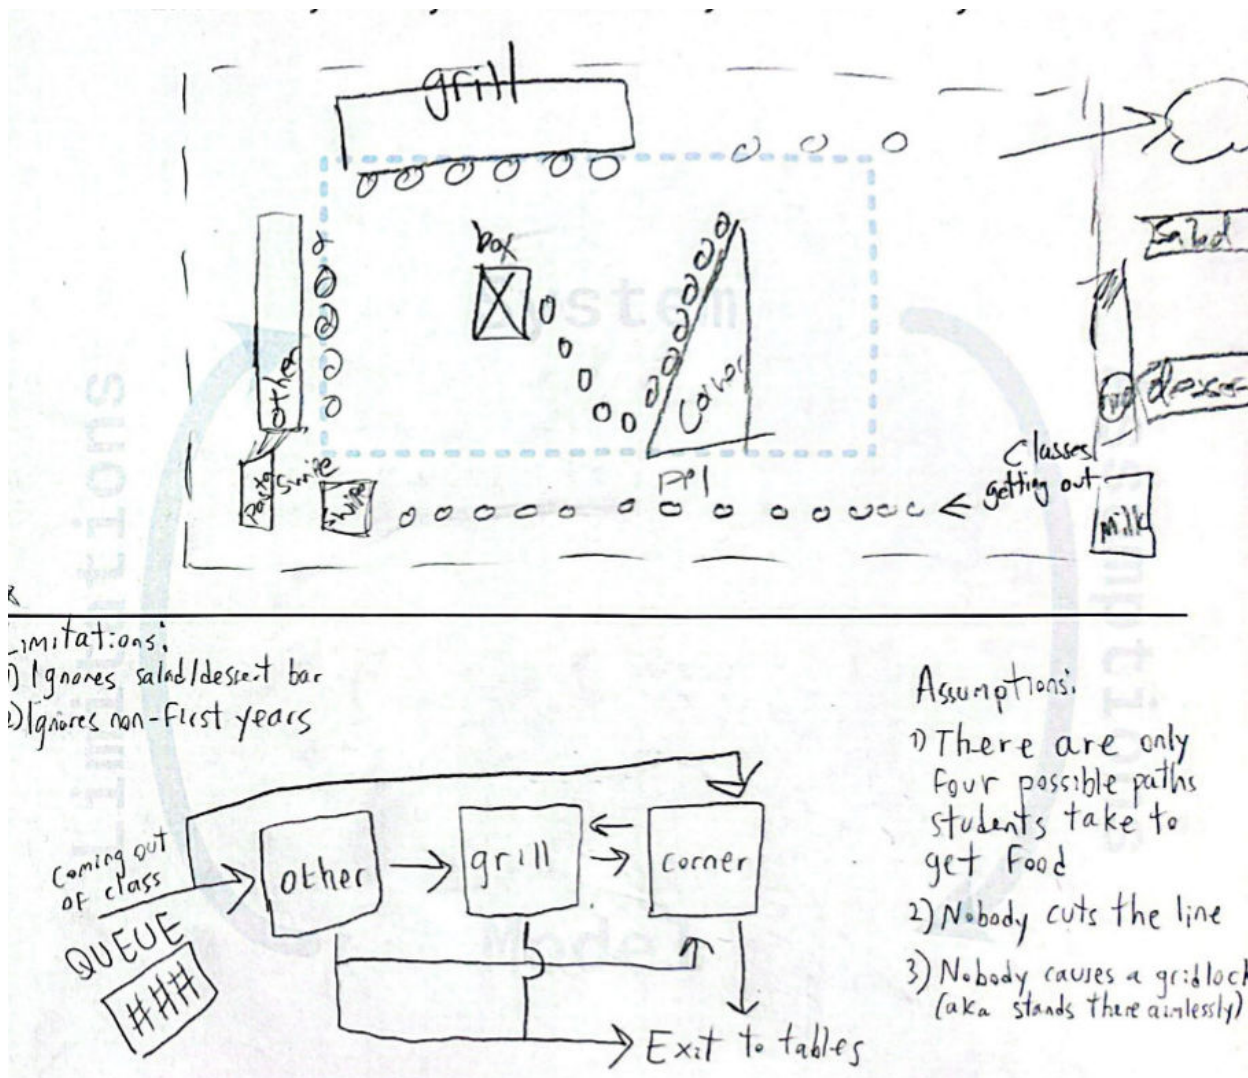 grill
box
System
Salad
other
Corner
Swipe
ppl
Classes
getting out
milk
Limitations:
1) Ignores salad/dessert bar
2) Ignores non-first years
Limitations
Assumptions
Assumptions:
1) There are only
four possible paths
students take to
get food
2) Nobody cuts the line
3) Nobody causes a gridlock
(aka stands there aimlessly)
coming out
of class
QUEUE
###
other
grill
corner
Model
Exit to tables